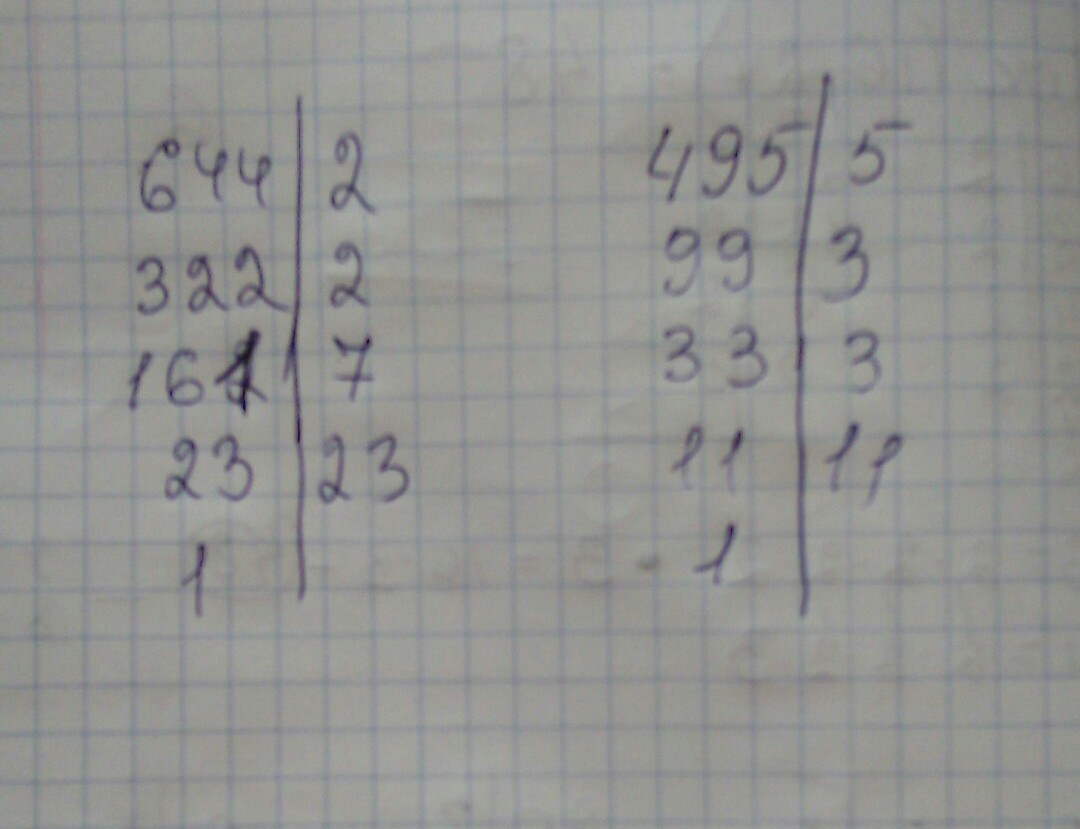 644 | 2
322 | 2
161 | 7
23 | 23
1 |
495 | 5
99 | 3
33 | 3
11 | 11
1 |